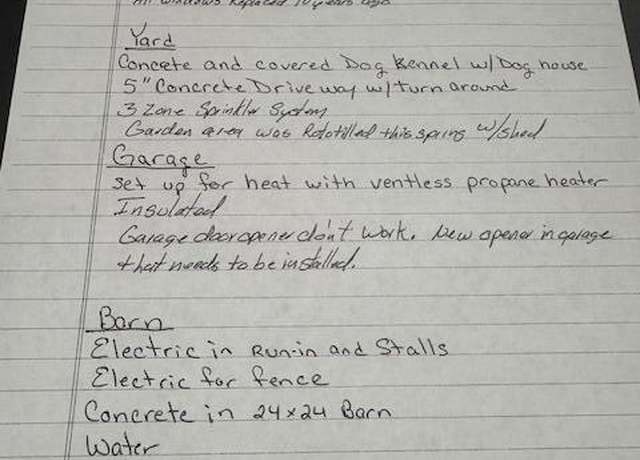 All windows Replaced 10 years ago
Yard
Concrete and covered Dog Kennel w/Dog house
5" Concrete Driveway w/turn around
3 Zone Sprinkler System
Garden area was Rototilled this spring w/shed
Garage
Set up for heat with ventless propane heater
Insulated
Garage door opener don't work. New opener in garage
that needs to be installed.
Barn
Electric in Run-in and Stalls
Electric for fence
Concrete in 24x24 Barn
Water